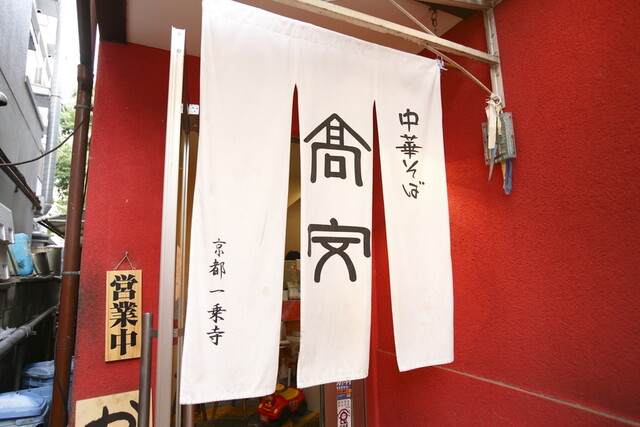 中華そば
髙安
京都一乗寺
営業中
か